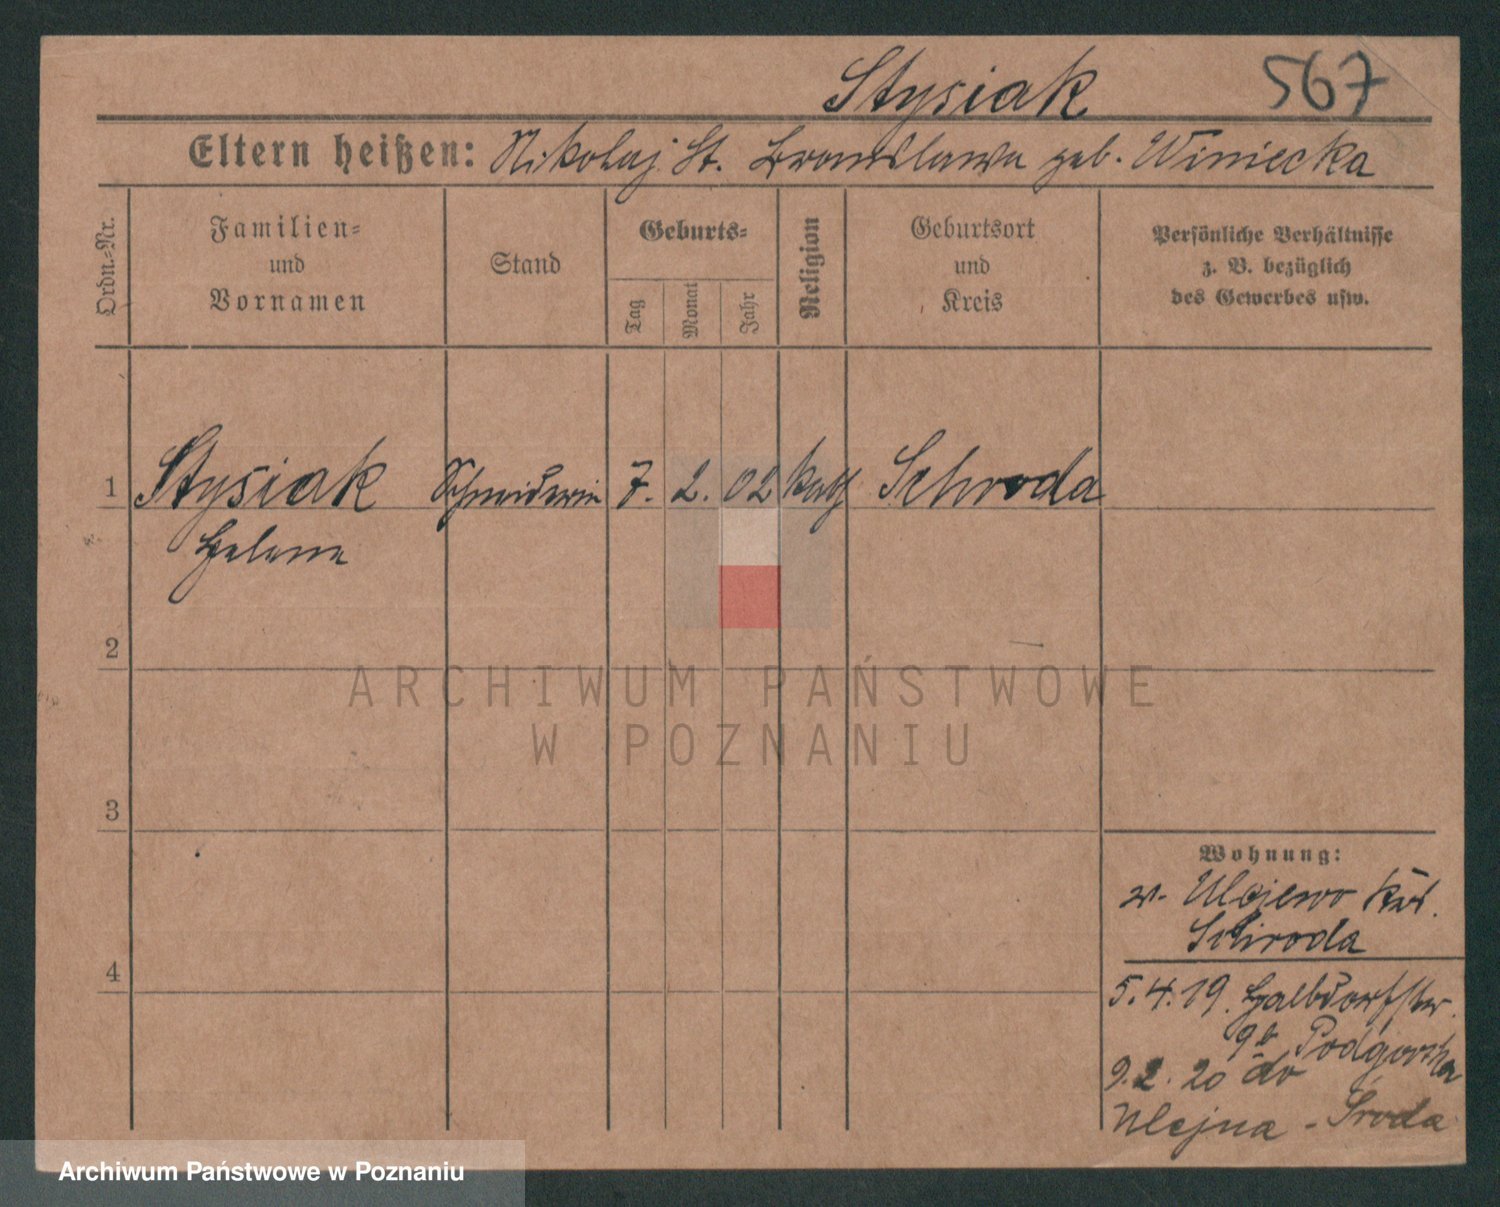 Stysiak 567
Eltern heißen: Nikolaj St. Bronislawa geb. Winiecka
Ordn.=Nr.
Familien=
und
Vornamen
Stand
Geburts=
Tag
Monat
Jahr
Religion
Geburtsort
und
Kreis
Persönliche Verhältnisse
z. B. bezüglich
des Gewerbes usw.
1 Stysiak Schneiderin 7. 2. 02 kath Schroda
Helena
2
3
4
Wohnung:
v. Ulejewo Krs.
Schroda
5.4.19. Halbdorfstr.
Podgórska
9.2.20 do
Ulejna - Środa
ARCHIWUM PAŃSTWOWE
W POZNANIU
Archiwum Państwowe w Poznaniu